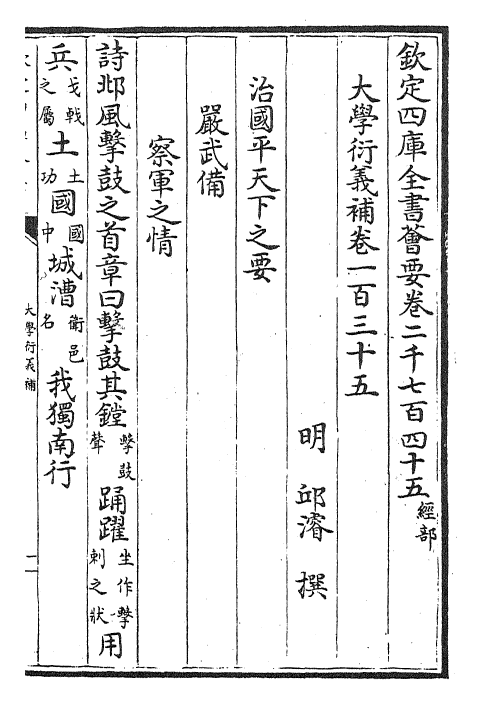 欽定四庫全書薈要卷二千七百四十五 經部
大學衍義補卷一百三十五
明 邱濬 撰
治國平天下之要
嚴武備
察軍之情
詩邶風擊鼓之首章曰擊鼓其鏜擊鼓聲踊躍坐作擊刺之狀用
兵戈戟之屬土土功國國中城漕衛邑名我獨南行
大學衍義補
一